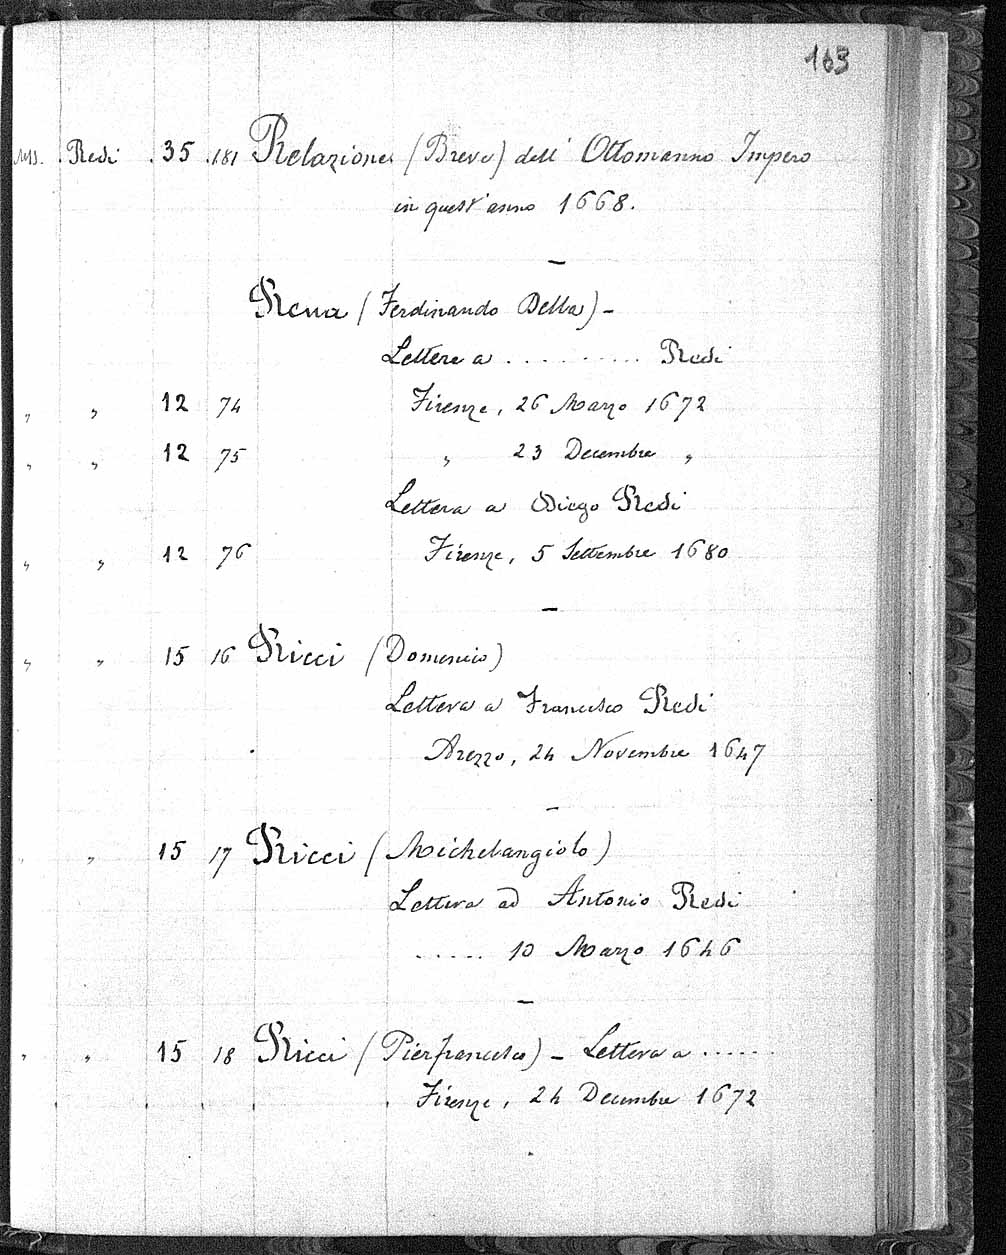 163
Mss. Redi 35 181 Relazione (Breve) dell' Ottomanno Impero
in quest'anno 1668.
—
Rena (Ferdinando Della) –
Lettere a . . . . . . . . . . Redi
" " 12 74 Firenze, 26 Marzo 1672
" " 12 75 " 23 Decembre "
Lettera a Diego Redi
" " 12 76 Firenze, 5 Settembre 1680
—
" " 15 16 Ricci (Domenico)
Lettera a Francesco Redi
Arezzo, 24 Novembre 1647
—
" " 15 17 Ricci (Michelangiolo)
Lettera ad Antonio Redi
. . . . . 10 Marzo 1646
—
" " 15 18 Ricci (Pierfrancesco) – Lettera a . . . . . .
Firenze, 24 Decembre 1672